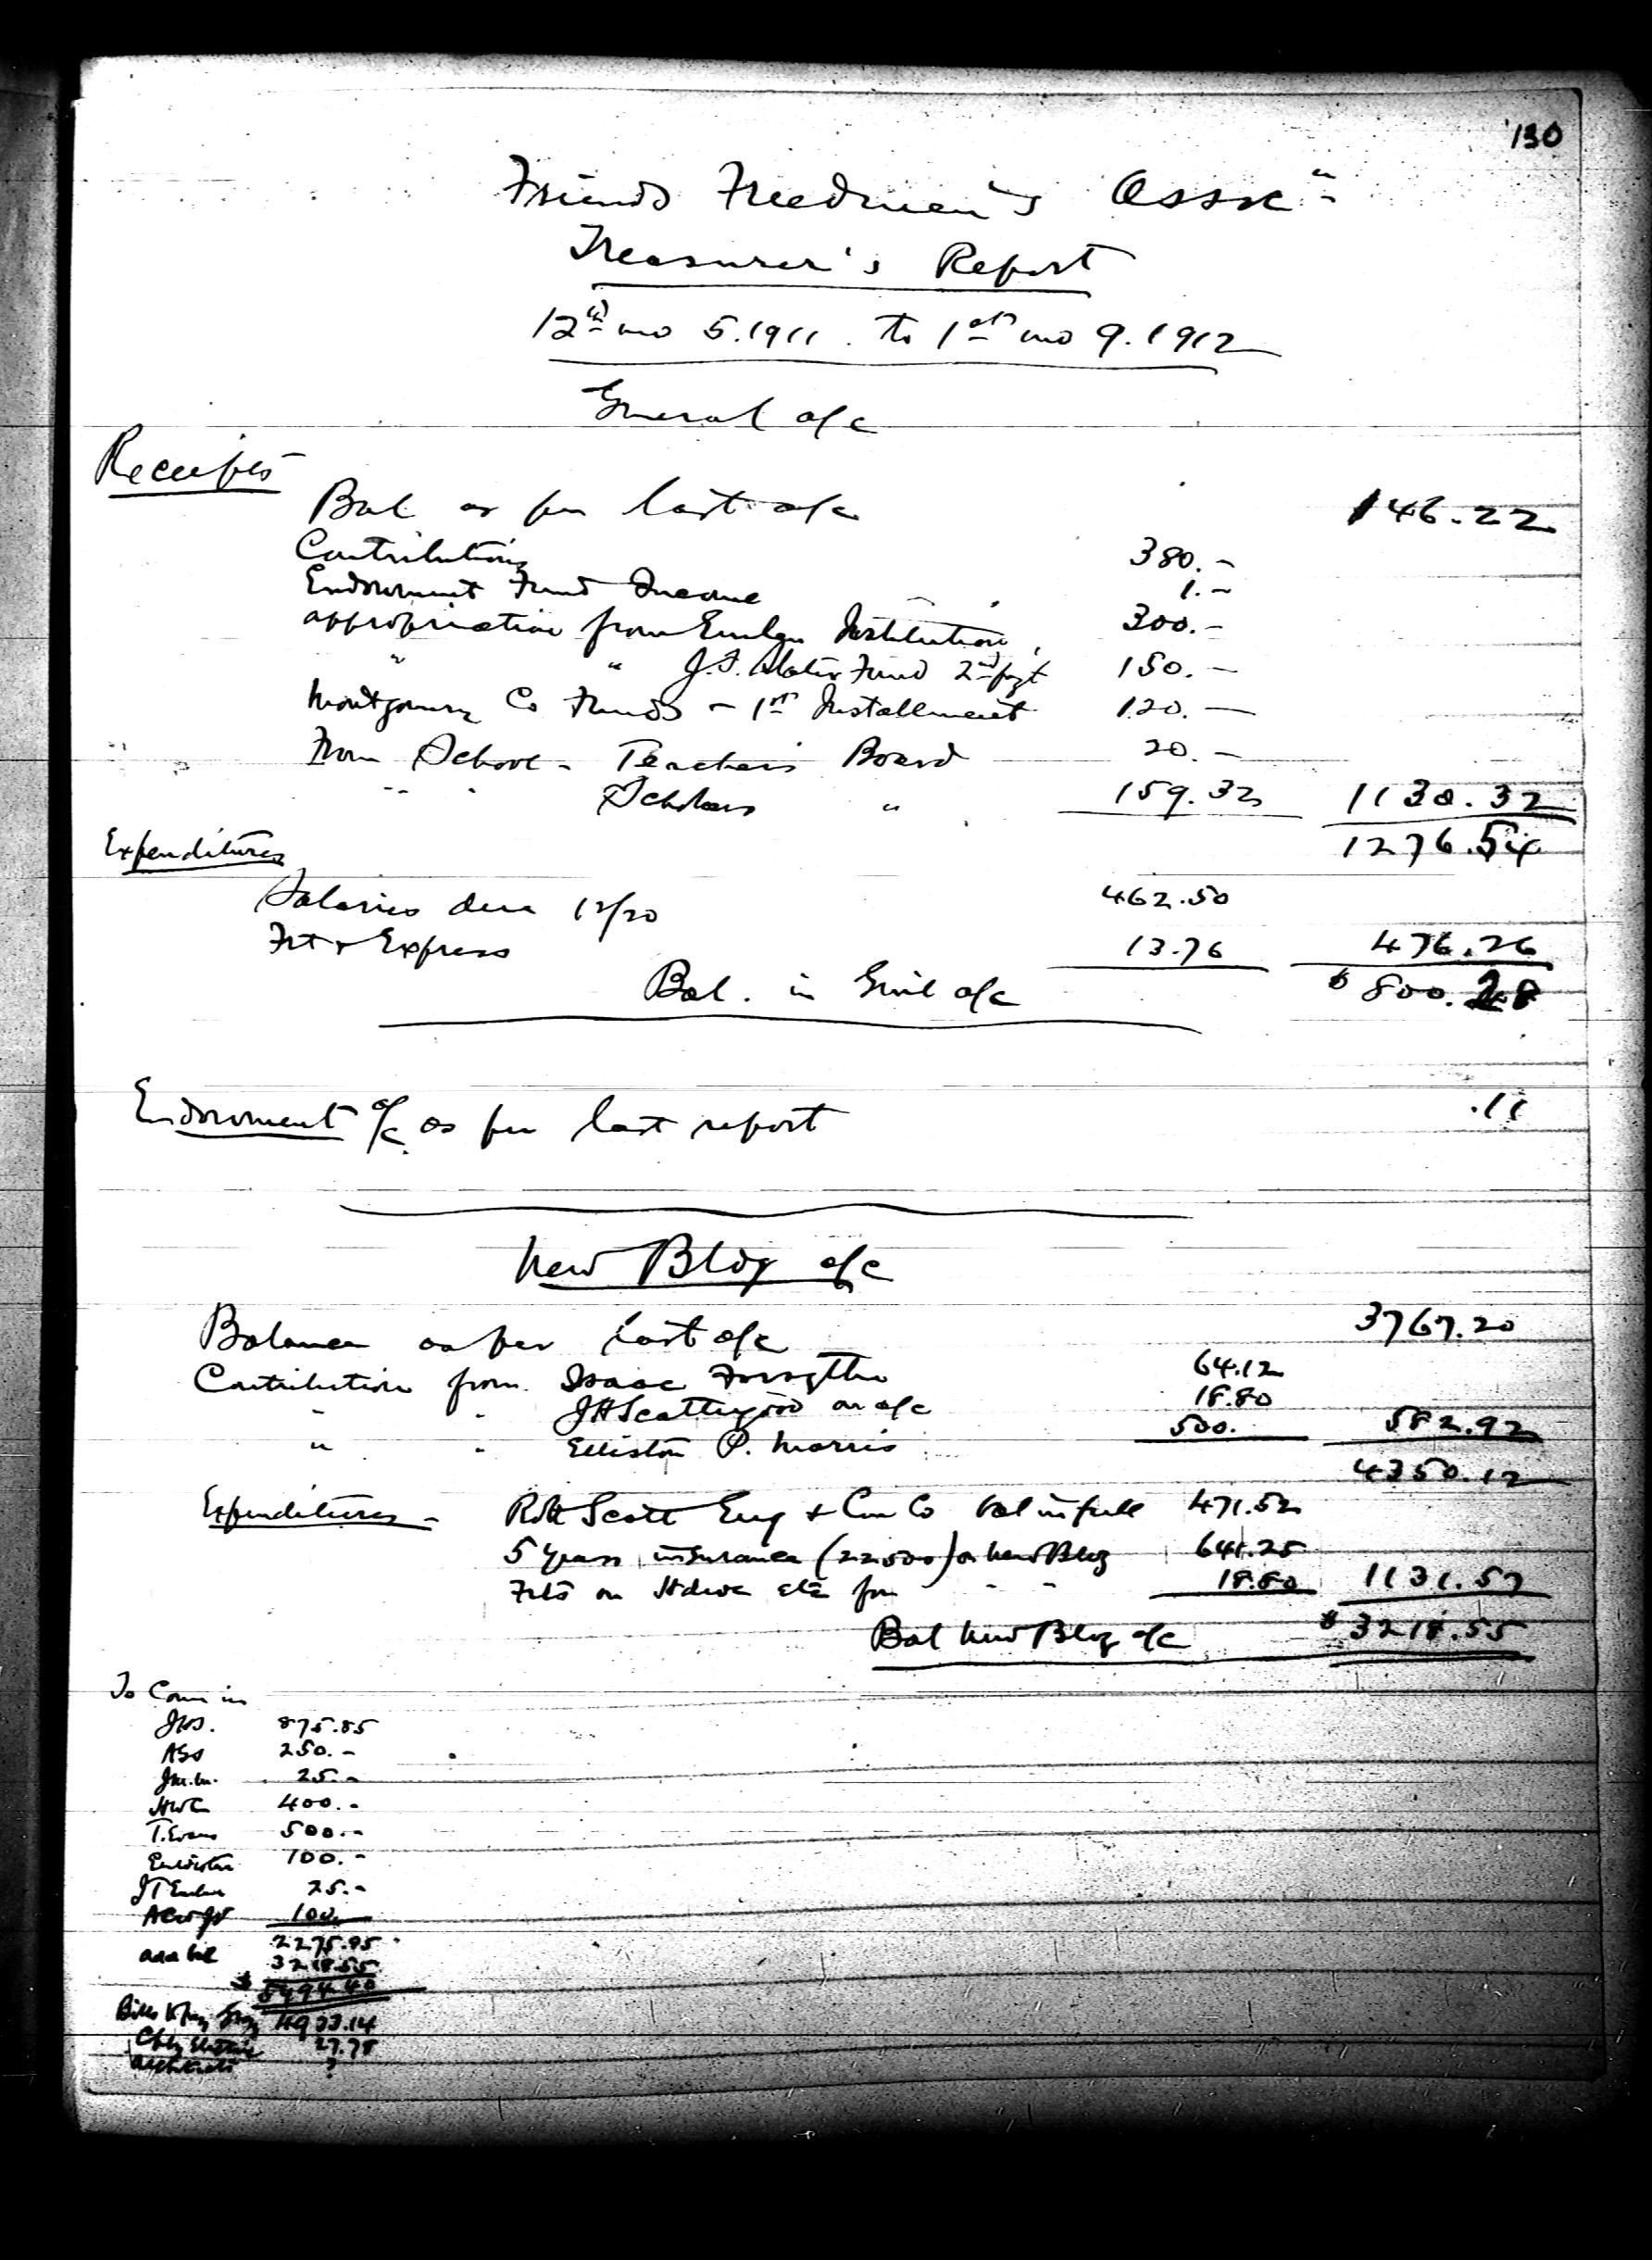 130
Friends Freedmen's Assn
Treasurer's Report
12th mo 5. 1911. to 1st mo 9. 1912
General a/c
Receipts
Bal as per last a/c 146.22
Contributions 380.-
Endowment Fund Income 1.-
appropriation from Emlen Institution, 300.-
" " J.F. Slater Fund 2nd pyt 150.-
Montgomery Co Funds - 1st Installment 120.-
From School - Teachers Board 20.-
" " Scholars " 159.32 1130.32
1276.54
Expenditures
Salaries due 12/20 462.50
Frt & Express 13.76 476.26
Bal. in Genl a/c $ 800.28
Endowment a/c as per last report .11
New Bldg a/c
Balance as per last a/c 3767.20
Contribution from Isaac Forsythe 64.12
" " JH Scattergood on a/c 18.80
" " Elliston P. Morris 500. 582.92
4350.12
Expenditures - Robt Scott Eng & Con Co bal in full 471.52
5 years insurance (22.500) on New Bldg 641.25
Frts on Hdwe etc for " " 18.80 1131.57
Bal New Bldg a/c $ 3218.55
To Come in
JHS. 875.85
250.-
25.-
HWC 400.-
T. Evans 500.-
100.-
25.-
100.
add bal 2275.85
3218.55
$ 5494.40
Bills to pay 4933.14
27.78
Architects ?